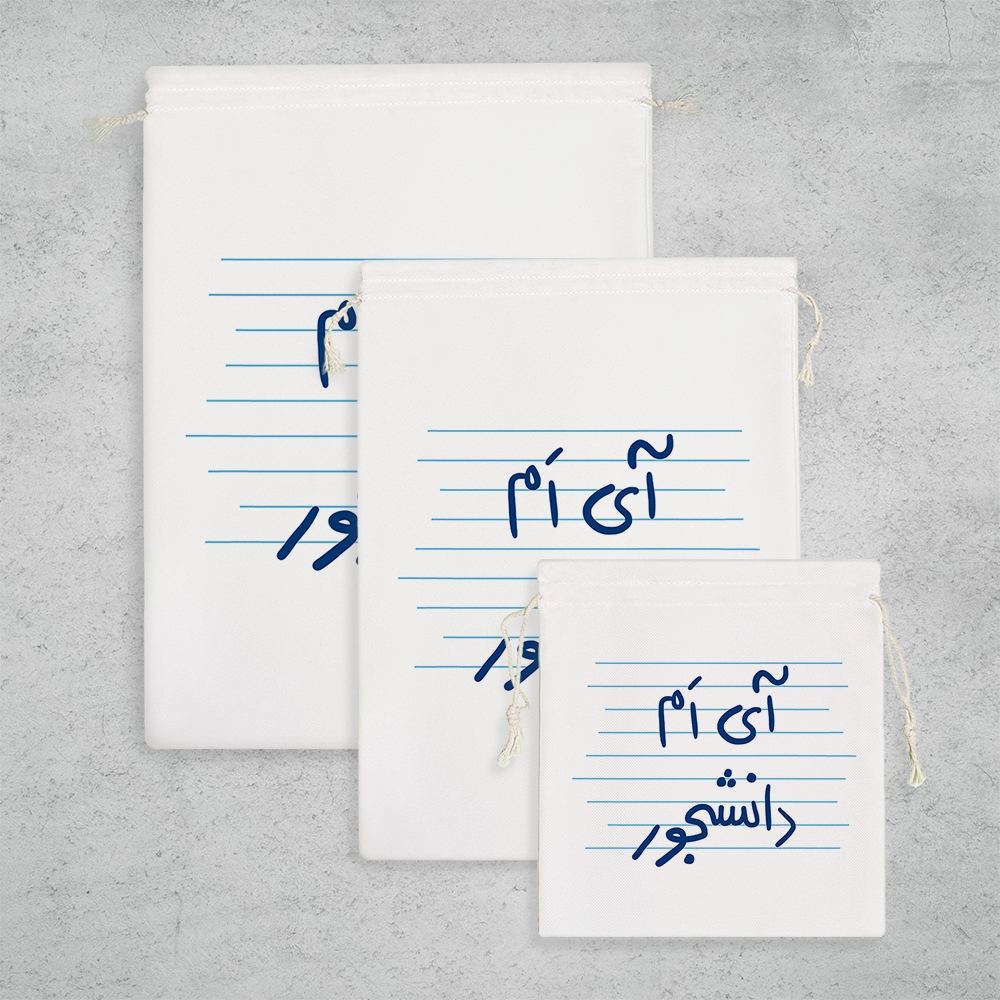 م
ور
آی اَم
ور
آی اَم
دانشجور